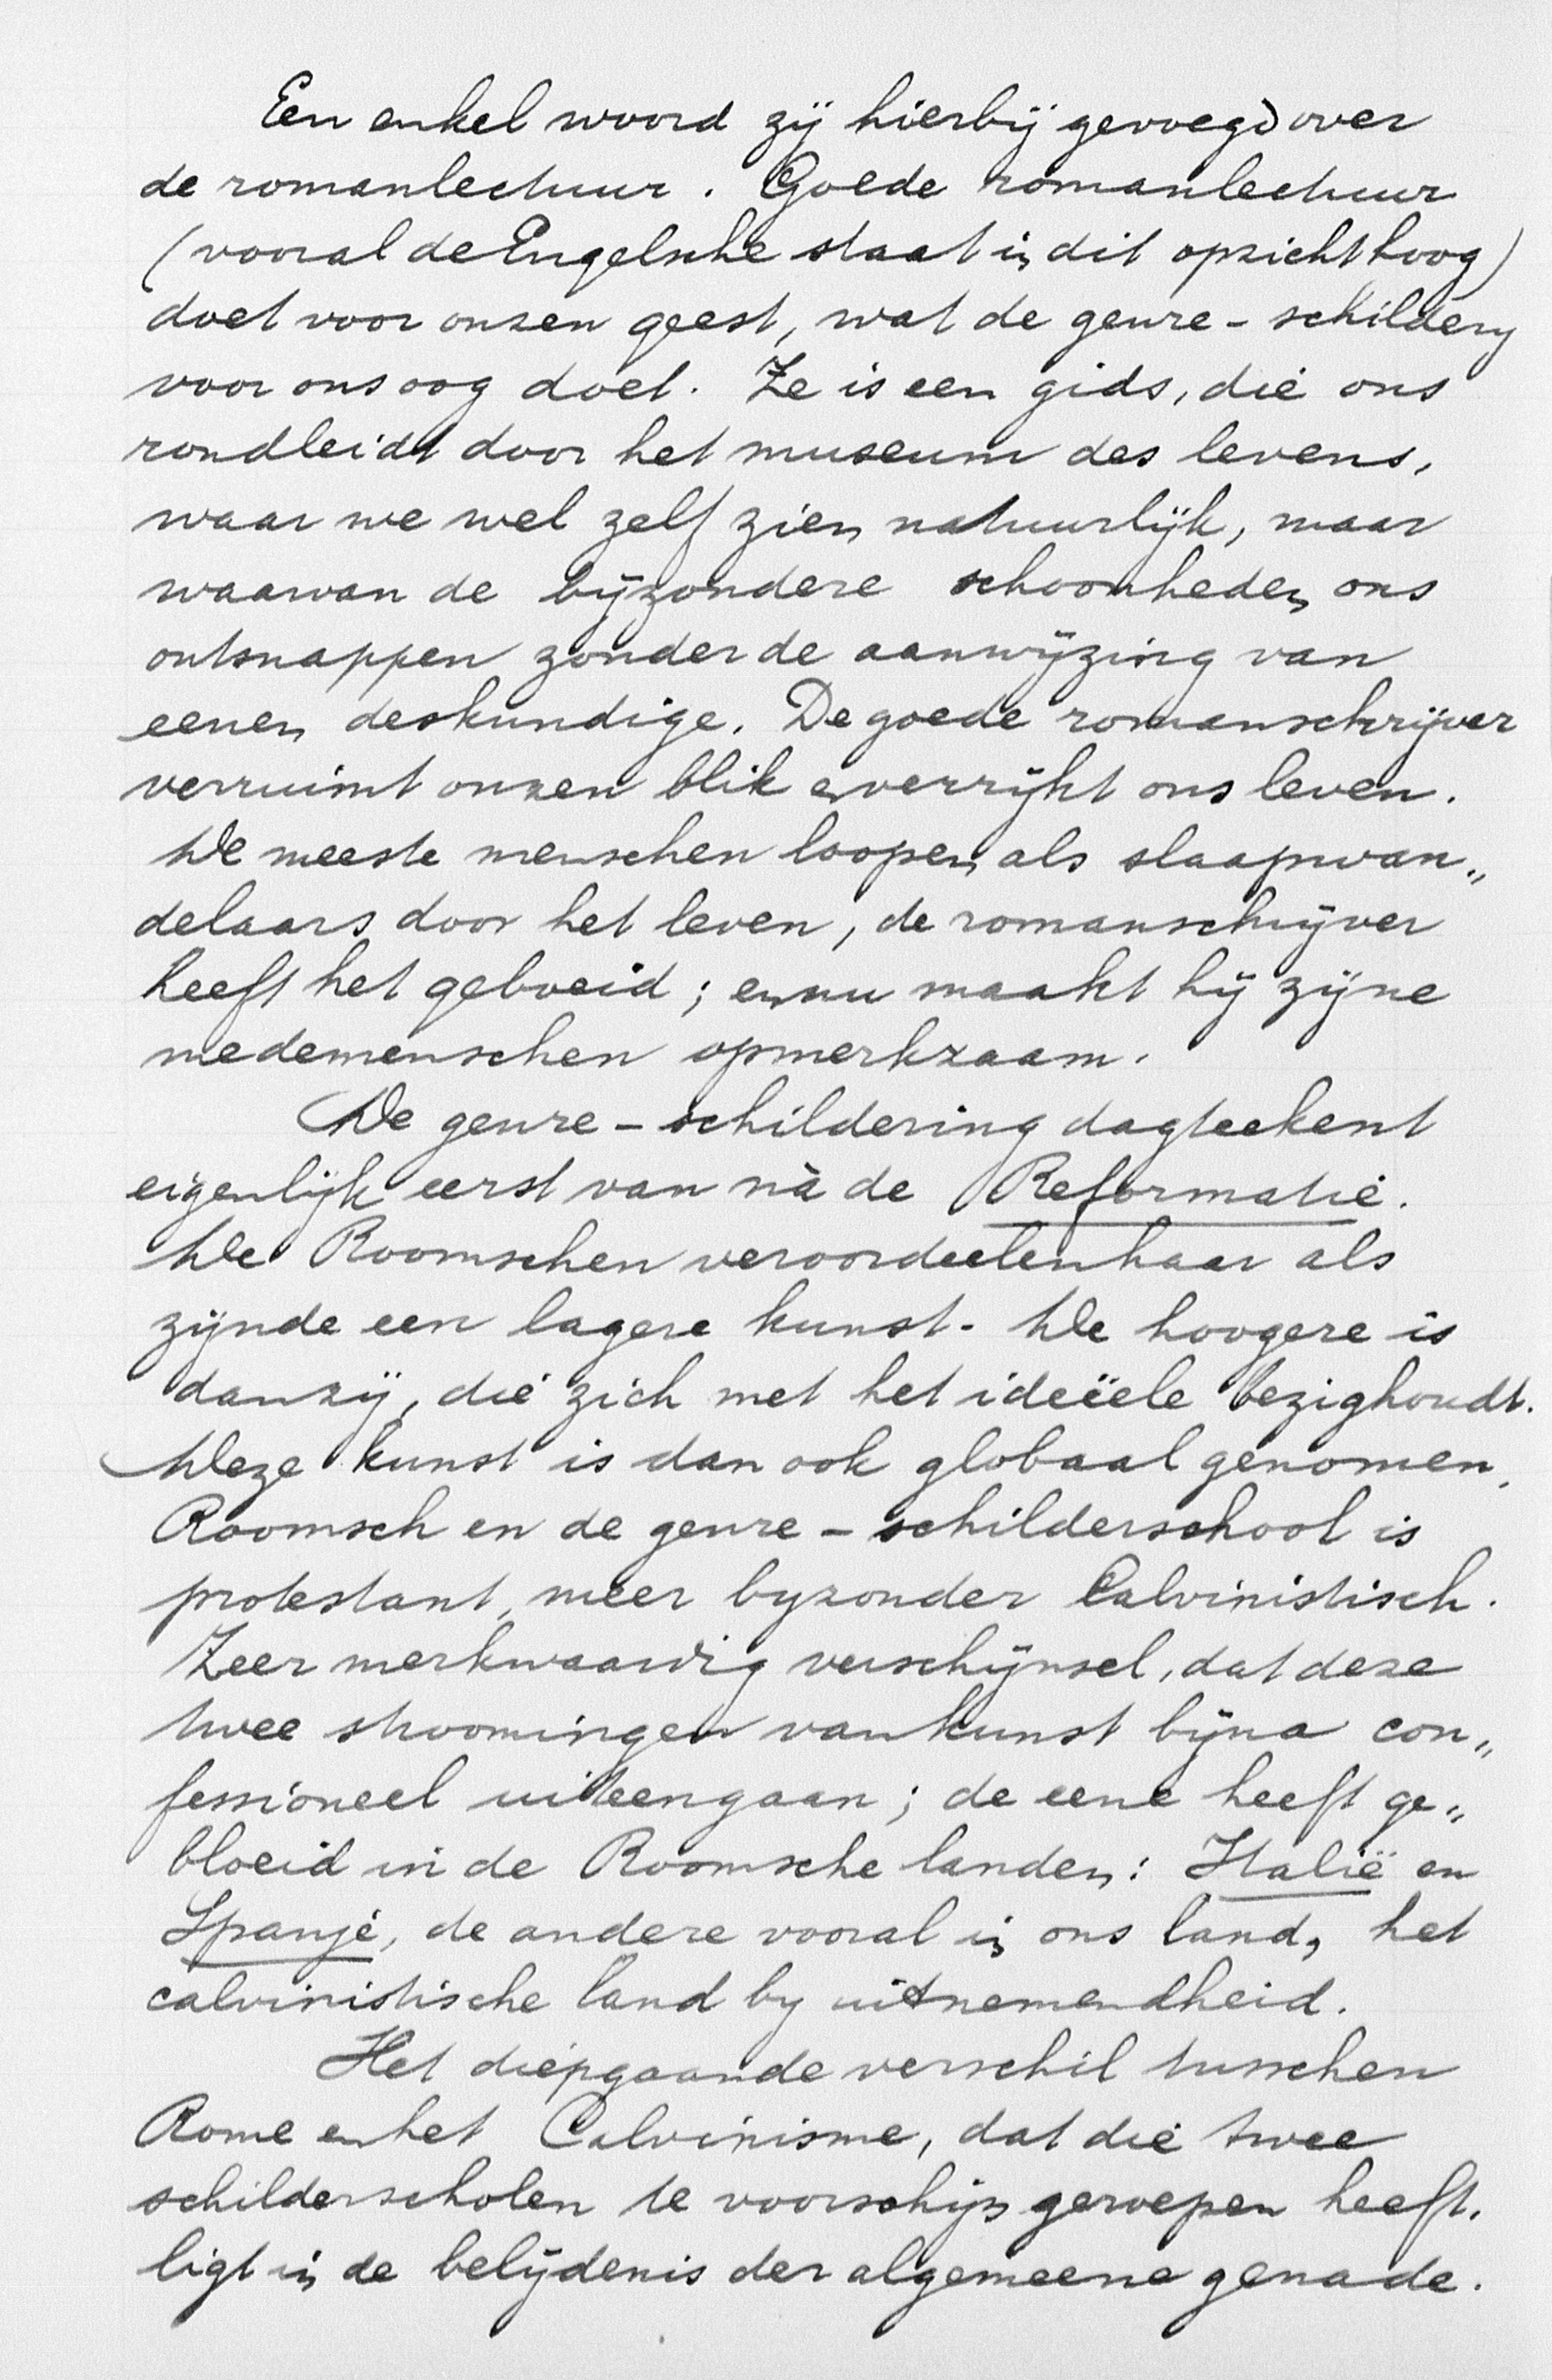 Een enkel woord zij hierbij gevoegd over
de romanlectuur. Goede romanlectuur
(vooral de Engelsche staat in dit opzicht hoog)
doet voor onzen geest, wat de genre-schildery
voor ons oog doet. Ze is een gids, die ons
rondleidt door het museum des levens,
waar we wel zelf zien natuurlijk, maar
waarvan de bijzondere schoonheden ons
ontsnappen zonder de aanwijzing van
eenen deskundige. De goede romanschrijver
verruimt onzen blik en verrijkt ons leven.
De meeste menschen loopen als slaapwan„
delaars door het leven, de romanschrijver
heeft het geboeid; en nu maakt hij zijne
medemenschen opmerkzaam.
De genre-schildering dagteekent
eigenlijk eerst van nà de Reformatie.
De Roomschen veroordeelen haar als
zijnde een lagere kunst. De hoogere is
dan zij, die zich met het ideëele bezighoudt.
Deze kunst is dan ook globaal genomen,
Roomsch en de genre-schilderschool is
protestant, meer byzonder Calvinistisch.
Zeer merkwaardig verschijnsel, dat deze
twee stroomingen van kunst bijna con„
fessioneel uiteengaan; de eene heeft ge„
bloeid in de Roomsche landen: Italië en
Spanje, de andere vooral in ons land, het
calvinistische land by uitnemendheid.
Het diepgaande verschil tusschen
Rome en het Calvinisme, dat die twee
schilderscholen te voorschijn geroepen heeft,
ligt in de belijdenis der algemeene genade.